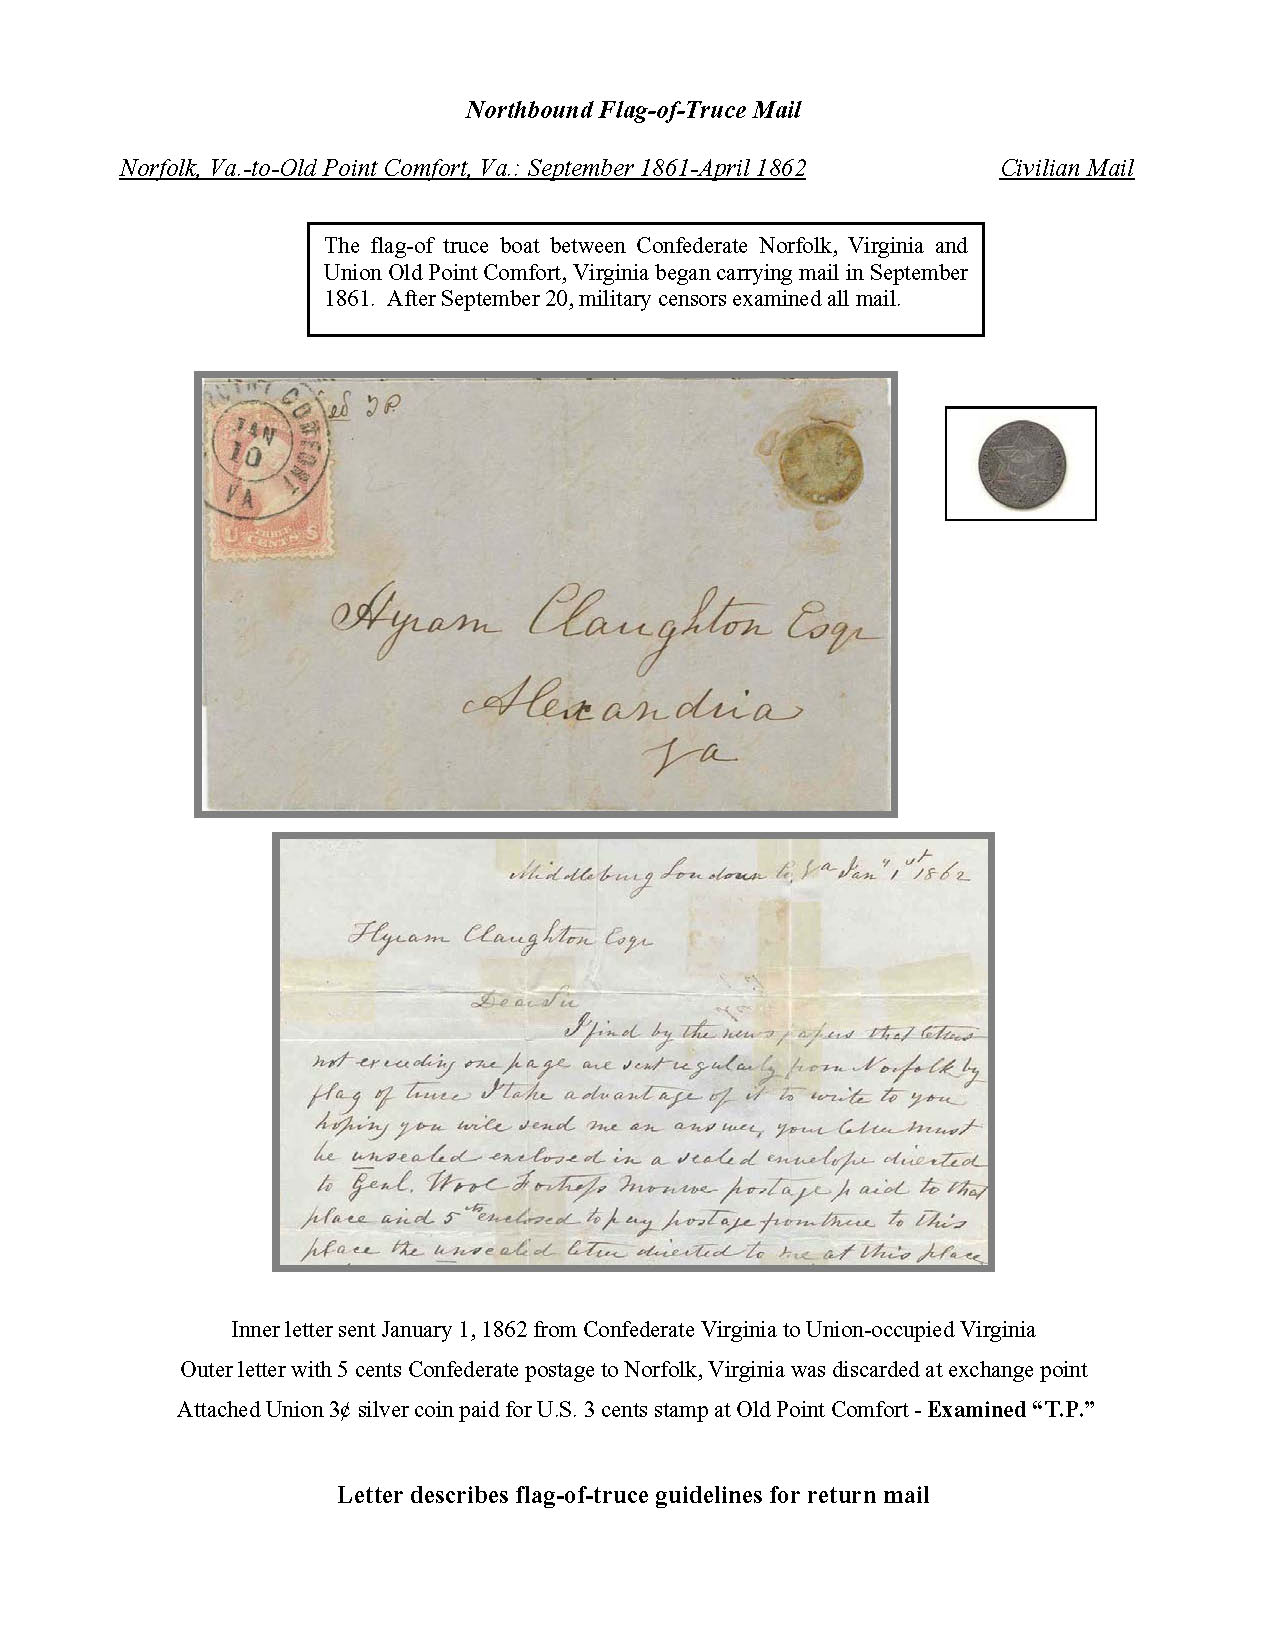 Northbound Flag-of-Truce Mail
Norfolk, Va.-to-Old Point Comfort, Va.: September 1861-April 1862 Civilian Mail
The flag-of truce boat between Confederate Norfolk, Virginia and
Union Old Point Comfort, Virginia began carrying mail in September
1861. After September 20, military censors examined all mail.
POINT COMFORT
JAN
10
VA
ed T.P.
U THREE CENTS S
Hyram Claughton Esqr
Alexandria
Va
Middleburg Loudoun Co, Va Jany 1st 1862
Hyram Claughton Esqr
Dear Sir
I find by the newspapers that letters
not exceeding one page are sent regularly from Norfolk by
flag of truce I take advantage of it to write to you
hoping you will send me an answer, your letter must
be unsealed enclosed in a sealed envelope directed
to Genl. Wool Fortress Monroe postage paid to that
place and 5 cts enclosed to pay postage from there to this
place the unsealed letter directed to me at this place
Inner letter sent January 1, 1862 from Confederate Virginia to Union-occupied Virginia
Outer letter with 5 cents Confederate postage to Norfolk, Virginia was discarded at exchange point
Attached Union 3¢ silver coin paid for U.S. 3 cents stamp at Old Point Comfort - Examined “T.P.”
Letter describes flag-of-truce guidelines for return mail